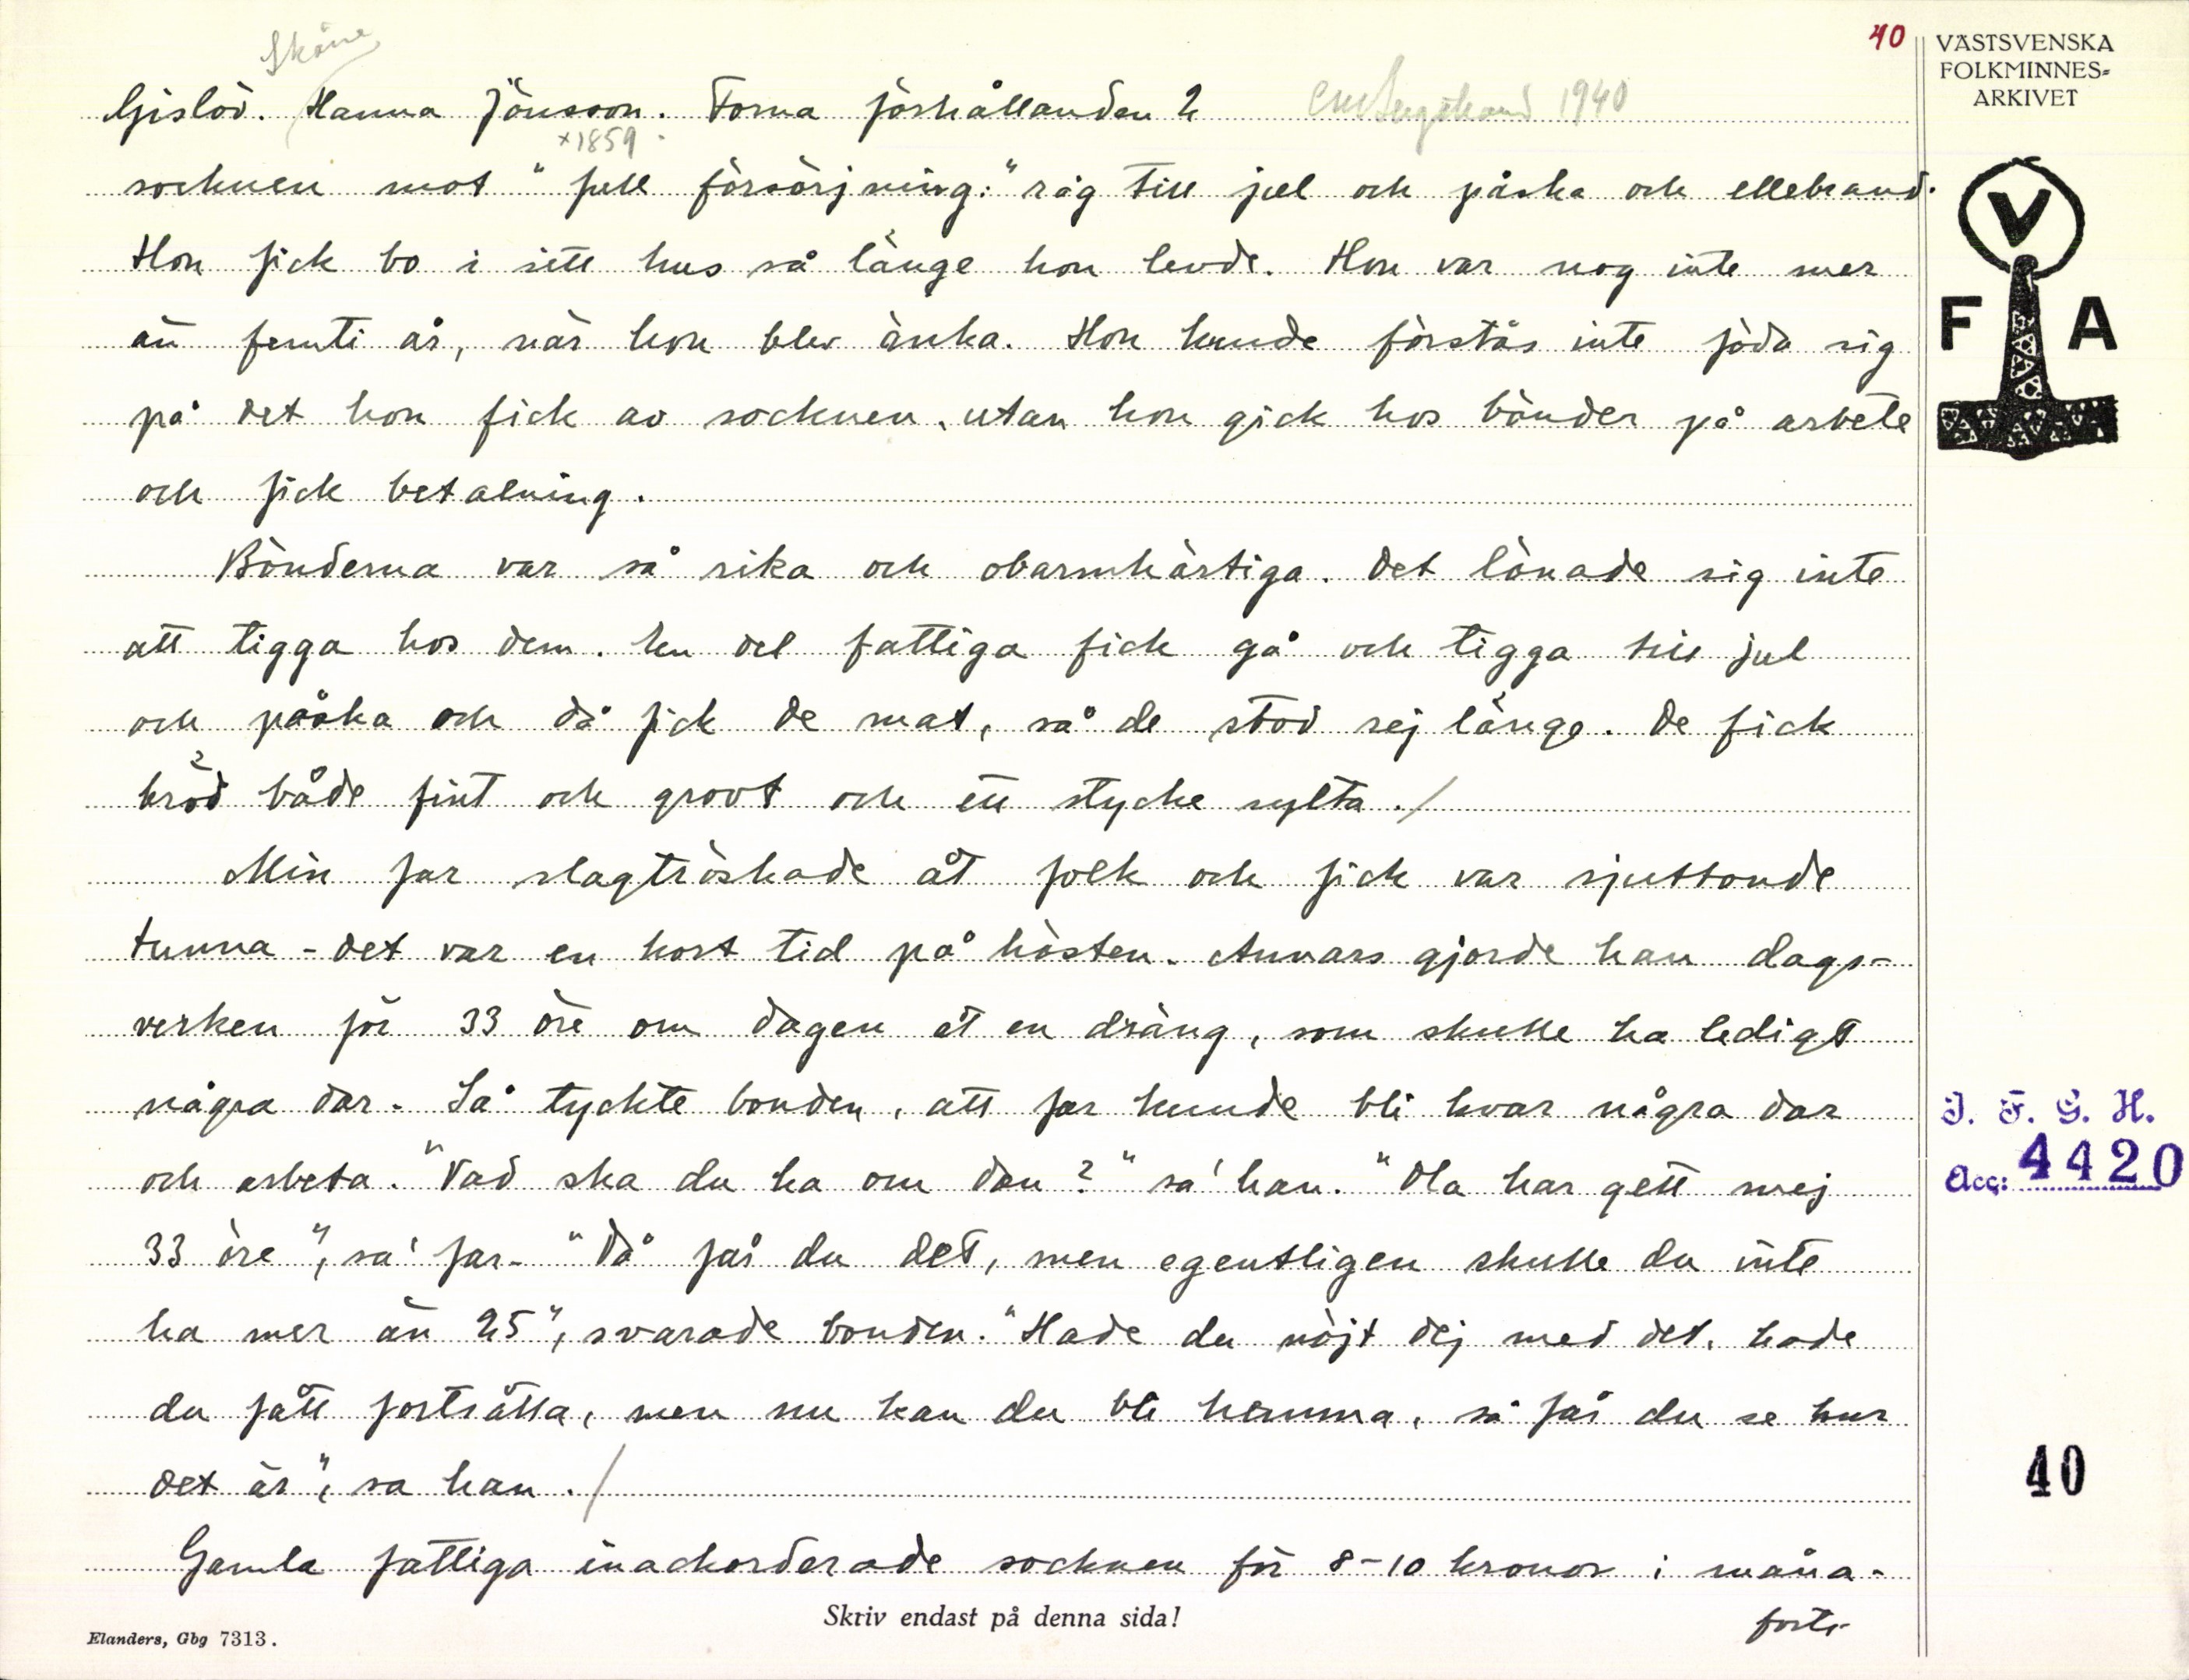 40
VÄSTSVENSKA
FOLKMINNES=
ARKIVET
Skåne
Gislöv. Hanna Jönsson. Forna förhållanden 2 1940
×1859
socknen mot "full försörjning:" råg till jul och påska och ellebrand.
Hon fick bo i sitt hus så länge hon levde. Hon var nog inte mer
än femti år, när hon blev änka. Hon kunde förstås inte föda sig
på det hon fick av socknen, utan hon gick hos bönder på arbete
och fick betalning.
Bönderna var så rika och obarmhärtiga. Det lönade sig inte
att tigga hos dem. En del fattiga fick gå och tigga till jul
och påska och då fick de mat, så de stod sej länge. De fick
bröd både fint och grovt och ett stycke sylta./
Min far slagtröskade åt folk och fick var sjuttonde
tunna - det var en kort tid på hösten. Annars gjorde han dags-
verken för 33 öre om dagen åt en dräng, som skulle ha ledigt
några dar. Så tyckte bonden, att far kunde bli kvar några dar
och arbeta. "Vad ska du ha om dan?" sa' han. "Ola har gett mej
33 öre", sa' far. "Då får du det, men egentligen skulle du inte
ha mer än 25", svarade bonden. "Hade du nöjt dej med det, hade
du fått fortsätta, men nu kan du bli hemma, så får du se hur
det är", sa han./
Gamla fattiga inackorderade socknen för 8-10 kronor i måna-
forts.
Skriv endast på denna sida!
Elanders, Gbg 7313.
V
F A
I. F. G. H.
Acc: 4420
40